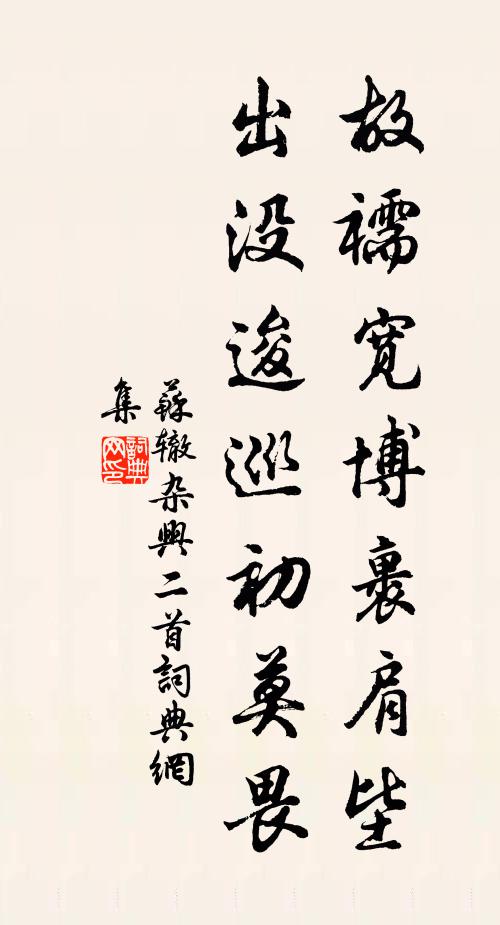 故襦寬博裹肩坒
出没逡巡初莫畏
蘇辙杂興二首詞典網
集
詞典网印